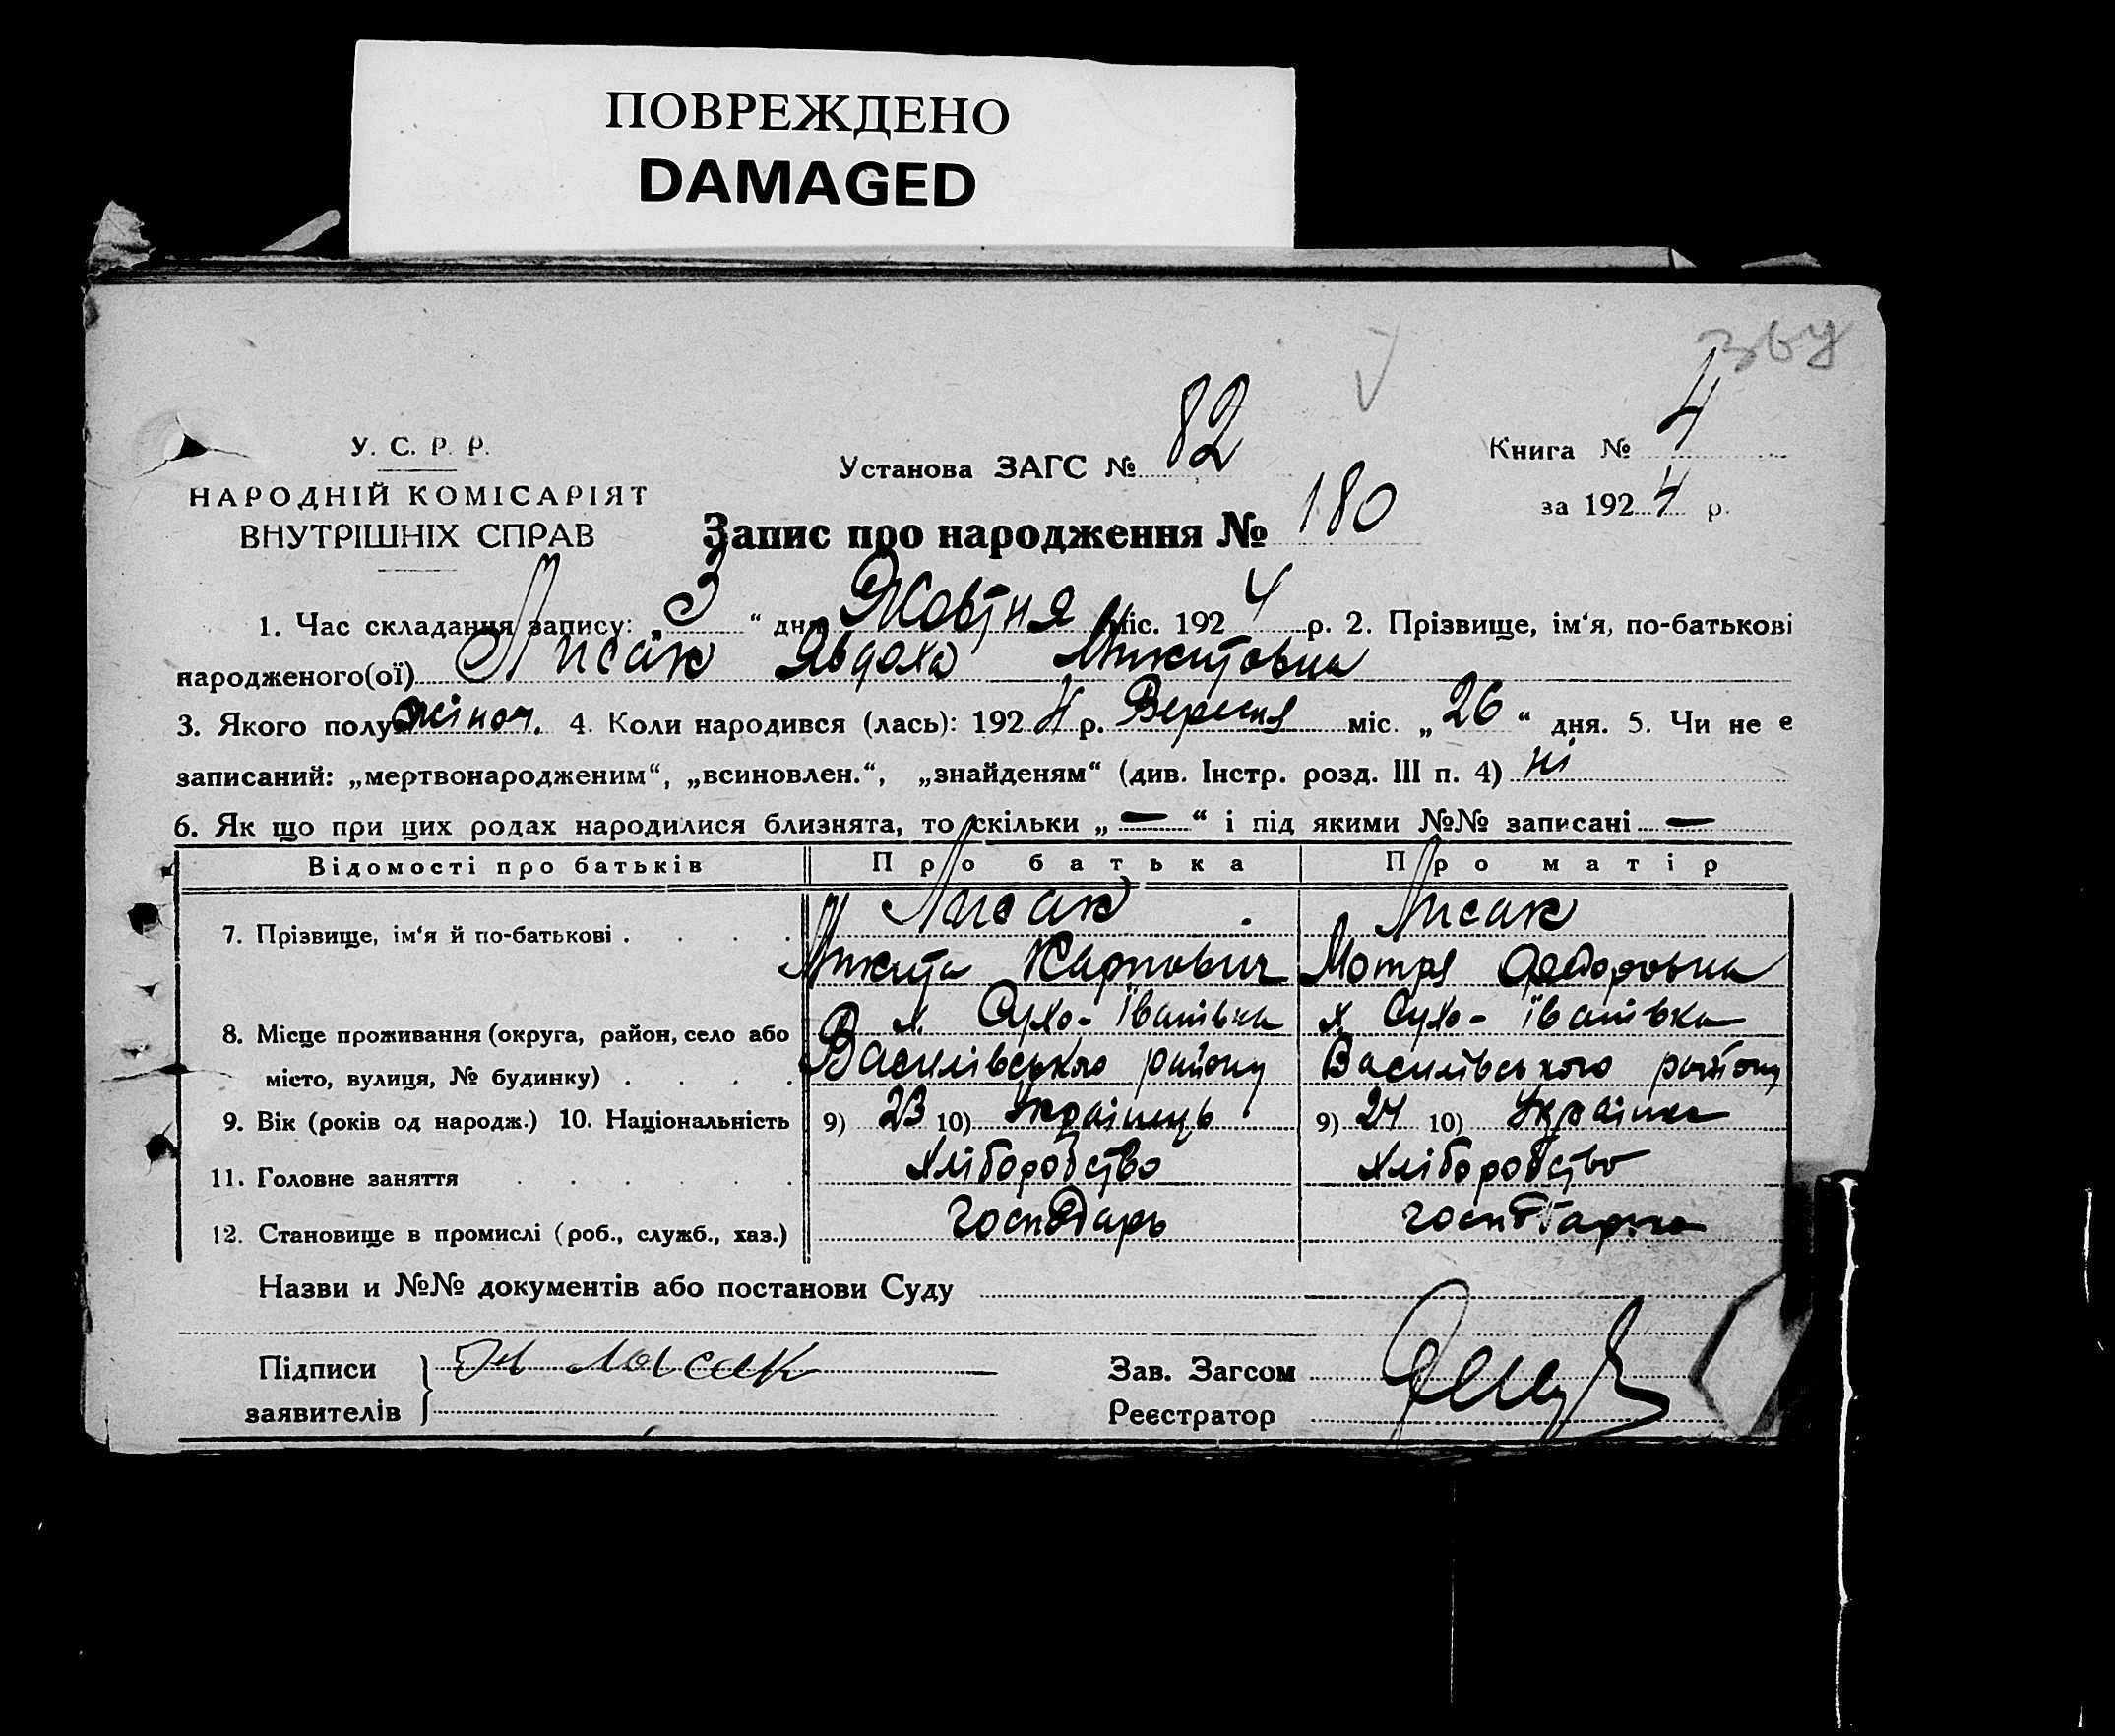 ПОВРЕЖДЕНО
DAMAGED
У. С. Р. Р.
НАРОДНІЙ КОМІСАРІЯТ
ВНУТРІШНІХ СПРАВ
Установа ЗАГС № 82
Книга № 4
за 1924 р.
Запис про народження № 180
1. Час складання запису: „3“ дня Жовтня міс. 1924 р. 2. Прізвище, ім‘я, по-батькові
народженого(ої) Лисак Явдоха Микитовна
3. Якого полу жіноч. 4. Коли народився (лась): 1924 р. Вересня міс. „26“ дня. 5. Чи не є
записаний: „мертвонародженим“, „всиновлен.“, „знайденям“ (див. Інстр. розд. III п. 4) ні
6. Як що при цих родах народилися близнята, то скільки „—“ і під якими №№ записані —
Відомості про батьків Про батька Про матір
Лисак Лисак
7. Прізвище, ім‘я й по-батькові Микита Карпович Мотря Федоровна
8. Місце проживання (округа, район, село або х. Сухо-Іванівка х. Сухо-Іванівка
місто, вулиця, № будинку) Василівського району Василівського району
9. Вік (років од народж.) 10. Національність 9) 23 10) Українець 9) 24 10) Українка
11. Головне заняття Хліборобство Хліборобство
12. Становище в промислі (роб., служб., хаз.) господарь господарка
Назви и №№ документів або постанови Суду
Підписи Лисак
заявителів
Зав. Загсом
Реєстратор